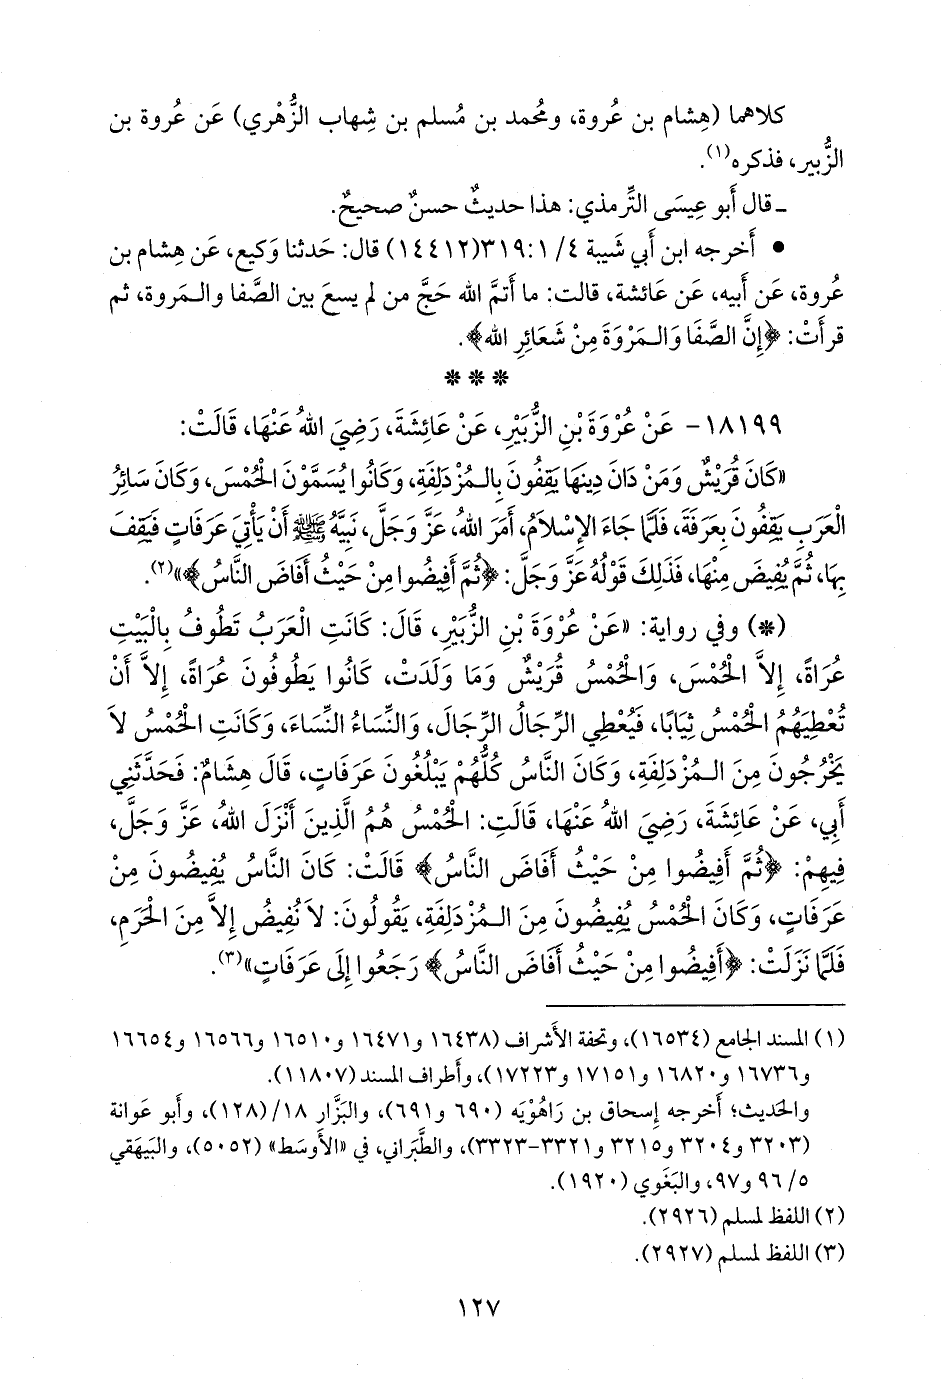 كلاهما (هِشام بن عُروة، ومُحمد بن مُسلم بن شِهاب الزُّهْري) عَن عُروة بن
الزُّبير، فذكره(١).
ـ قال أَبو عِيسَى التِّرمذي: هذا حديثٌ حسنٌ صحيحٌ.
• أَخرجه ابن أَبي شَيبة ٤/ ١:٣١٩(١٤٤١٢) قال: حَدثنا وَكيع، عَن هِشام بن
عُروة، عَن أَبيه، عَن عَائشة، قالت: ما أَتمَّ الله حَجَّ من لم يسعَ بين الصَّفا والـمَروة، ثم
قرأَتْ: ﴿إِنَّ الصَّفَا وَالـمَرْوَةَ مِنْ شَعَائِرِ الله﴾.
* * *
١٨١٩٩- عَنْ عُرْوَةَ بْنِ الزُّبَيْرِ، عَنْ عَائِشَةَ، رَضِيَ اللهُ عَنْهَا، قَالَتْ:
«كَانَ قُرَيْشٌ وَمَنْ دَانَ دِينَهَا يَقِفُونَ بِالـمُزْدَلِفَةِ، وَكَانُوا يُسَمَّوْنَ الْحُمْسَ، وَكَانَ سَائِرُ
الْعَرَبِ يَقِفُونَ بِعَرَفَةَ، فَلَمَّا جَاءَ الإِسْلاَمُ، أَمَرَ اللهُ، عَزَّ وَجَلَّ، نَبِيَّهُ ﷺ أَنْ يَأْتِيَ عَرَفَاتٍ فَيَقِفَ
بِهَا، ثُمَّ يُفِيضَ مِنْهَا، فَذَلِكَ قَوْلُهُ عَزَّ وَجَلَّ: ﴿ثُمَّ أَفِيضُوا مِنْ حَيْثُ أَفَاضَ النَّاسُ﴾»(٢).
(*) وفي رواية: «عَنْ عُرْوَةَ بْنِ الزُّبَيْرِ، قَالَ: كَانَتِ الْعَرَبُ تَطُوفُ بِالْبَيْتِ
عُرَاةً، إِلاَّ الْحُمْسَ، وَالْحُمْسُ قُرَيْشٌ وَمَا وَلَدَتْ، كَانُوا يَطُوفُونَ عُرَاةً، إِلاَّ أَنْ
تُعْطِيَهُمُ الْحُمْسُ ثِيَابًا، فَيُعْطِي الرِّجَالُ الرِّجَالَ، وَالنِّسَاءُ النِّسَاءَ، وَكَانَتِ الْحُمْسُ لاَ
يَخْرُجُونَ مِنَ الـمُزْدَلِفَةِ، وَكَانَ النَّاسُ كُلُّهُمْ يَبْلُغُونَ عَرَفَاتٍ، قَالَ هِشَامٌ: فَحَدَّثَنِي
أَبِي، عَنْ عَائِشَةَ، رَضِيَ اللهُ عَنْهَا، قَالَتِ: الْحُمْسُ هُمُ الَّذِينَ أَنْزَلَ اللهُ، عَزَّ وَجَلَّ،
فِيهِمْ: ﴿ثُمَّ أَفِيضُوا مِنْ حَيْثُ أَفَاضَ النَّاسُ﴾ قَالَتْ: كَانَ النَّاسُ يُفِيضُونَ مِنْ
عَرَفَاتٍ، وَكَانَ الْحُمْسُ يُفِيضُونَ مِنَ الـمُزْدَلِفَةِ، يَقُولُونَ: لاَ نُفِيضُ إِلاَّ مِنَ الْحَرَمِ،
فَلَمَّا نَزَلَتْ: ﴿أَفِيضُوا مِنْ حَيْثُ أَفَاضَ النَّاسُ﴾ رَجَعُوا إِلَى عَرَفَاتٍ»(٣).
(١) المسند الجامع (١٦٥٣٤)، وتحفة الأَشراف (١٦٤٣٨ و١٦٤٧١ و١٦٥١٠ و١٦٥٦٦ و١٦٦٥٤
و١٦٧٣٦ و١٦٨٢٠ و١٧١٥١ و١٧٢٢٣)، وأَطراف المسند (١١٨٠٧).
والحَديث؛ أَخرجه إِسحاق بن رَاهُوْيَه (٦٩٠ و٦٩١)، والبَزَّار ١٨/(١٢٨)، وأَبو عَوانة
(٣٢٠٣ و٣٢٠٤ و٣٢١٥ و٣٣٢١-٣٣٢٣)، والطَّبَراني، في «الأَوسَط» (٥٠٥٢)، والبَيهَقي
٥/ ٩٦ و٩٧، والبَغَوي (١٩٢٠).
(٢) اللفظ لمسلم (٢٩٢٦).
(٣) اللفظ لمسلم (٢٩٢٧).
١٢٧